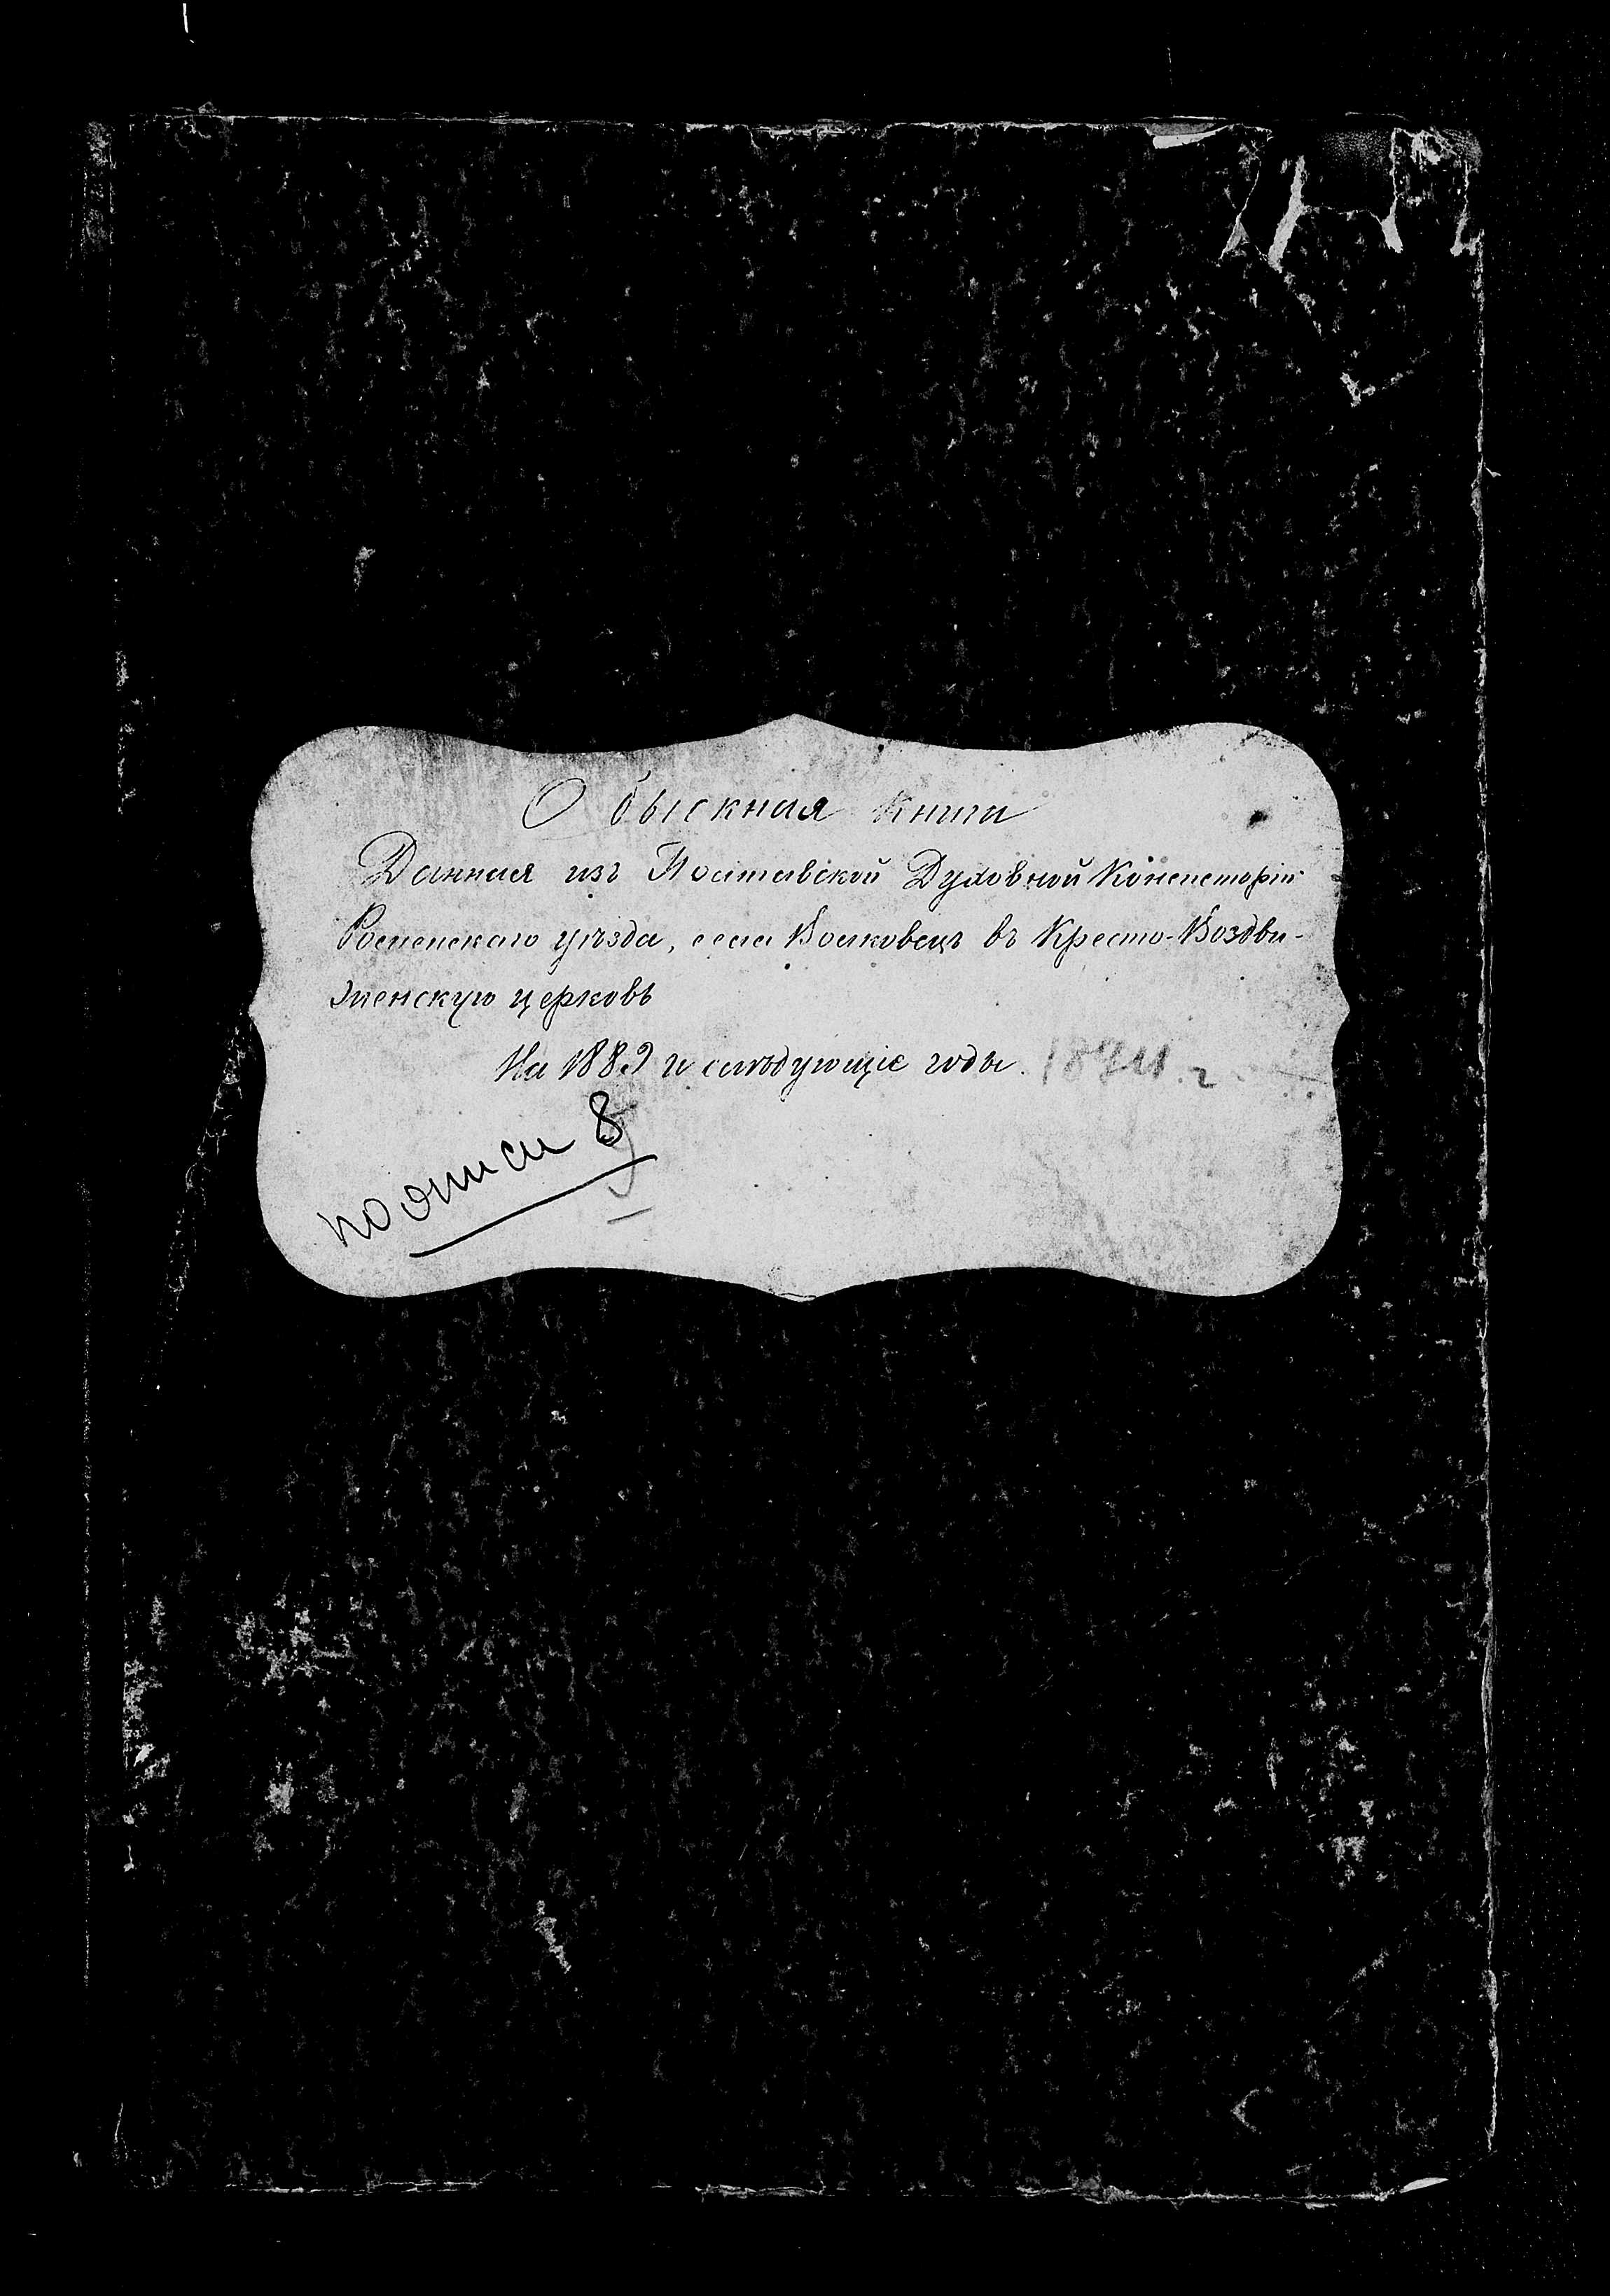 Обыскная книга
Данная изъ Полтавской Духовной Консисторіи
Роменскаго уѣзда, села Волковецъ въ Кресто-Воздви-
женскую церковь
На 1889 и слѣдующіе годы.
по описи 8